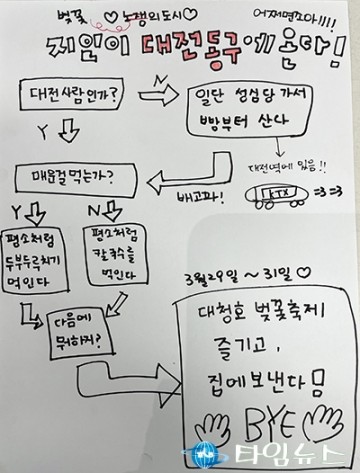 벚꽃 ♡ 노잼의도시 ♡
어쩌면조아!!!!
지인이 대전동구에 온다!
대전사람인가?
N
일단 성심당 가서
빵부터 산다
Y
대전역에 있음!!
KTX =3=3
배고파!
매운걸 먹는가?
Y
N
평소처럼
두부두루치기
먹인다
평소처럼
칼국수를
먹인다
다음에
뭐하지?
3월29일 ~ 31일 ♡
대청호 벚꽃축제
즐기고,
집에보낸다!
BYE
타임뉴스